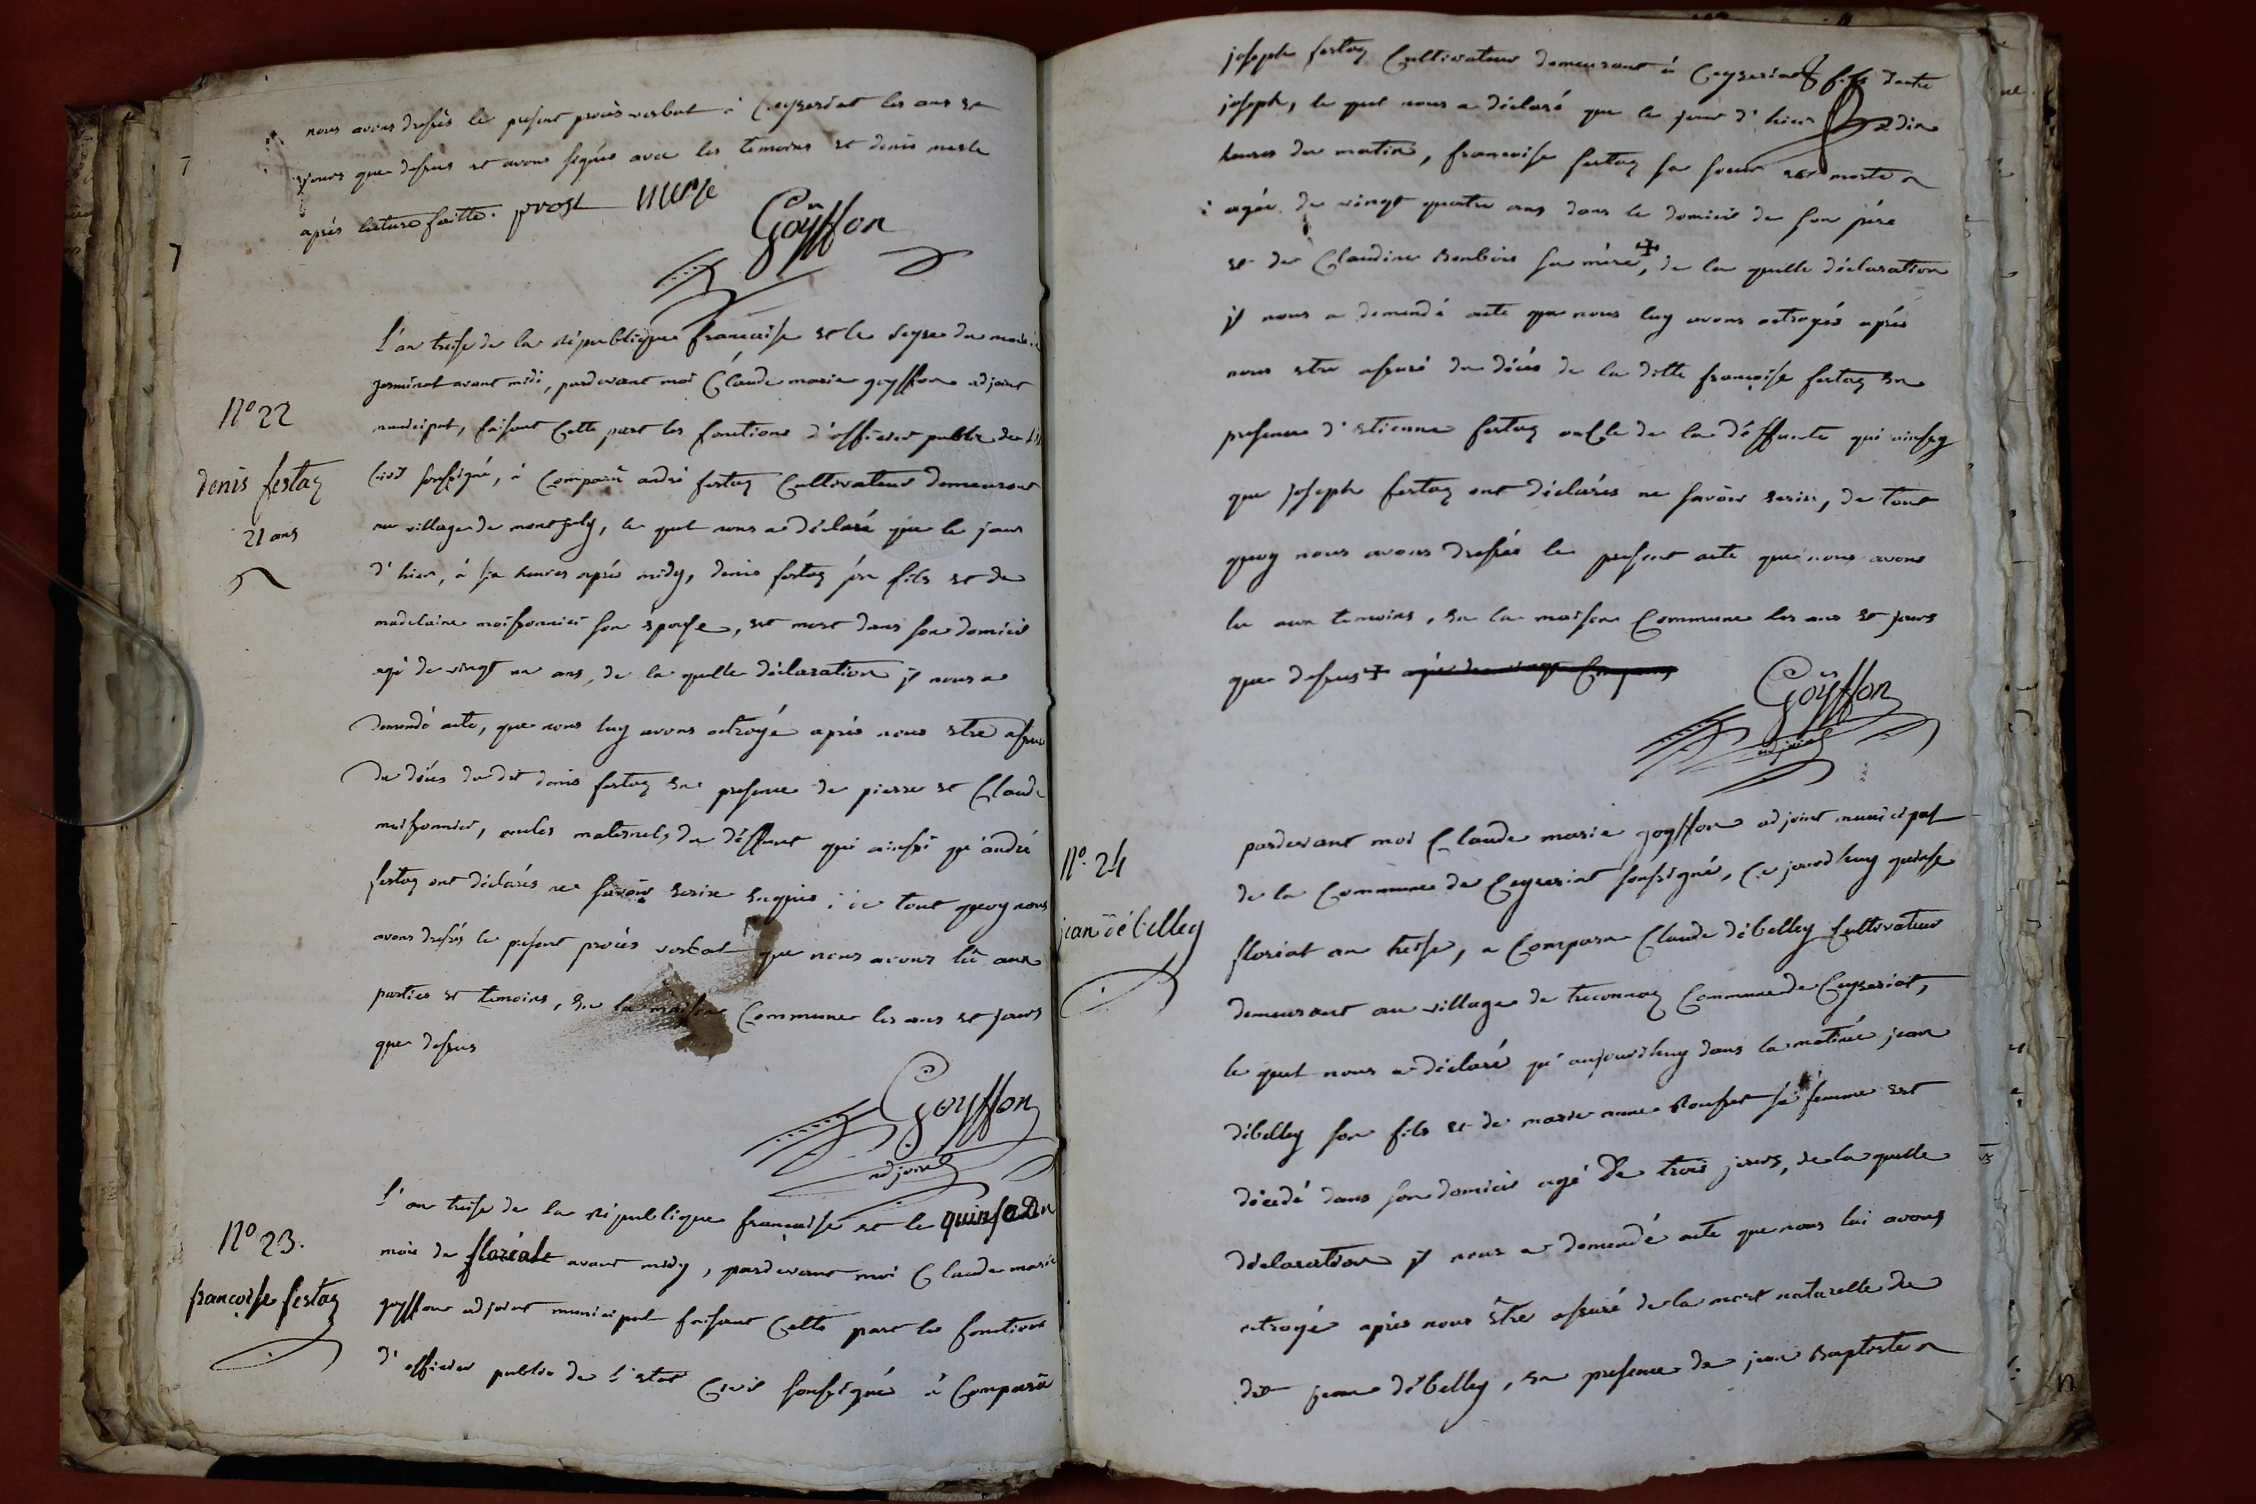 nous avons dressés le present procès verbal à Ceyseriat les ans et
jours que dessus et avons signés avec les temoins et denis merle
après lecture faitte. prost merle
Goÿffon
N° 22
denis festaz
21 ans
L'an treise de la république française et le seise du mois
germinal avant midi, pardevant moi Claude marie goyffon adjoint
municipal, faisant cette part les fonctions d'officier public de
civil soussigné, à comparû andré festaz cultivateur demeurant
au village de montjuly, le quel nous a déclaré que le jour
d'hier, à six heures après midy, denis festaz son fils et de
madelaine moissonnier son épouse, est mort dans son domicil
agé de vingt un ans, de la quelle déclaration jl nous a
demendé acte, que nous luy avons octroyé après nous etre assuré
du décès du dit denis festaz en presence de pierre et Claude
moissonnier, oncles maternels du déffunt qui ainssi qu'andré
festaz ont déclarés ne savoir ecrire enquis ; de tout quoy nous
avons dressés le present procès verbal que nous avons lû aux
parties et temoins, en la maison commune les ans et jours
que dessus
Goyffon
adjoint
N° 23.
francoise festaz
L'an treise de la république française et le quinse du
mois de floréal avant midy, pardevant moi Claude marie
goyffon adjoint municipal faisant cette part les fonctions
d'officier public de l'etat civil soussigné à comparû
joseph festaz cultivateur demeurant à Ceyseriat fils d'autre
joseph, le quel nous a déclaré que le jour d'hier à dix
heures du matin, francoise festaz sa soeur est morte
agée de vingt quatre ans dans le domicil de son père
et de Claudine Bonbois sa mère +, de la quelle déclaration
jl nous a demendé acte que nous luy avons octroyés après
nous etre assuré du décès de la ditte françoise festaz en
presence d'etienne festaz oncle de la déffunte qui ainssy
que joseph festaz ont déclarés ne savoir ecrire, de tout
quoy nous avons dressés le present acte que nous avons
lu aux temoins, en la maison commune les ans et jours
que dessus +
Goÿffon
adjoint
N° 24
jean débelley
pardevant moi Claude marie goyffon adjoint municipal
de la commune de Ceyseriat soussigné, ce jourdhuy quinse
floréal an treise, a comparu Claude débelley cultivateur
demeurant au village de treconnaz commune de Ceyseriat,
le quel nous a déclaré qu'aujourdhuy dans la matinée jean
débelley son fils et de marie anne Rousset sa femme est
décedé dans son domicil agé de trois jours, de la quelle
déclaration jl nous a demendé acte que nous lui avons
octroyé après nous être assuré de la mort naturelle du
dit jean débelley, en presence de jean Baptiste